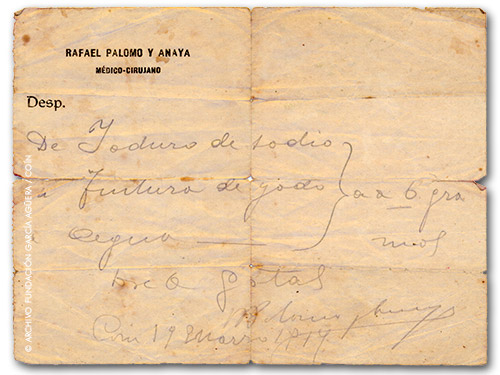 RAFAEL PALOMO Y ANAYA
MÉDICO-CIRUJANO
Desp.
De Ioduro de sodio
" Tintura de yodo
Agua
aa 6 gra
mos
gotas
Coin 19 Marzo
© ARCHIVO FUNDACIÓN GARCÍA AGÜERA / COÍN